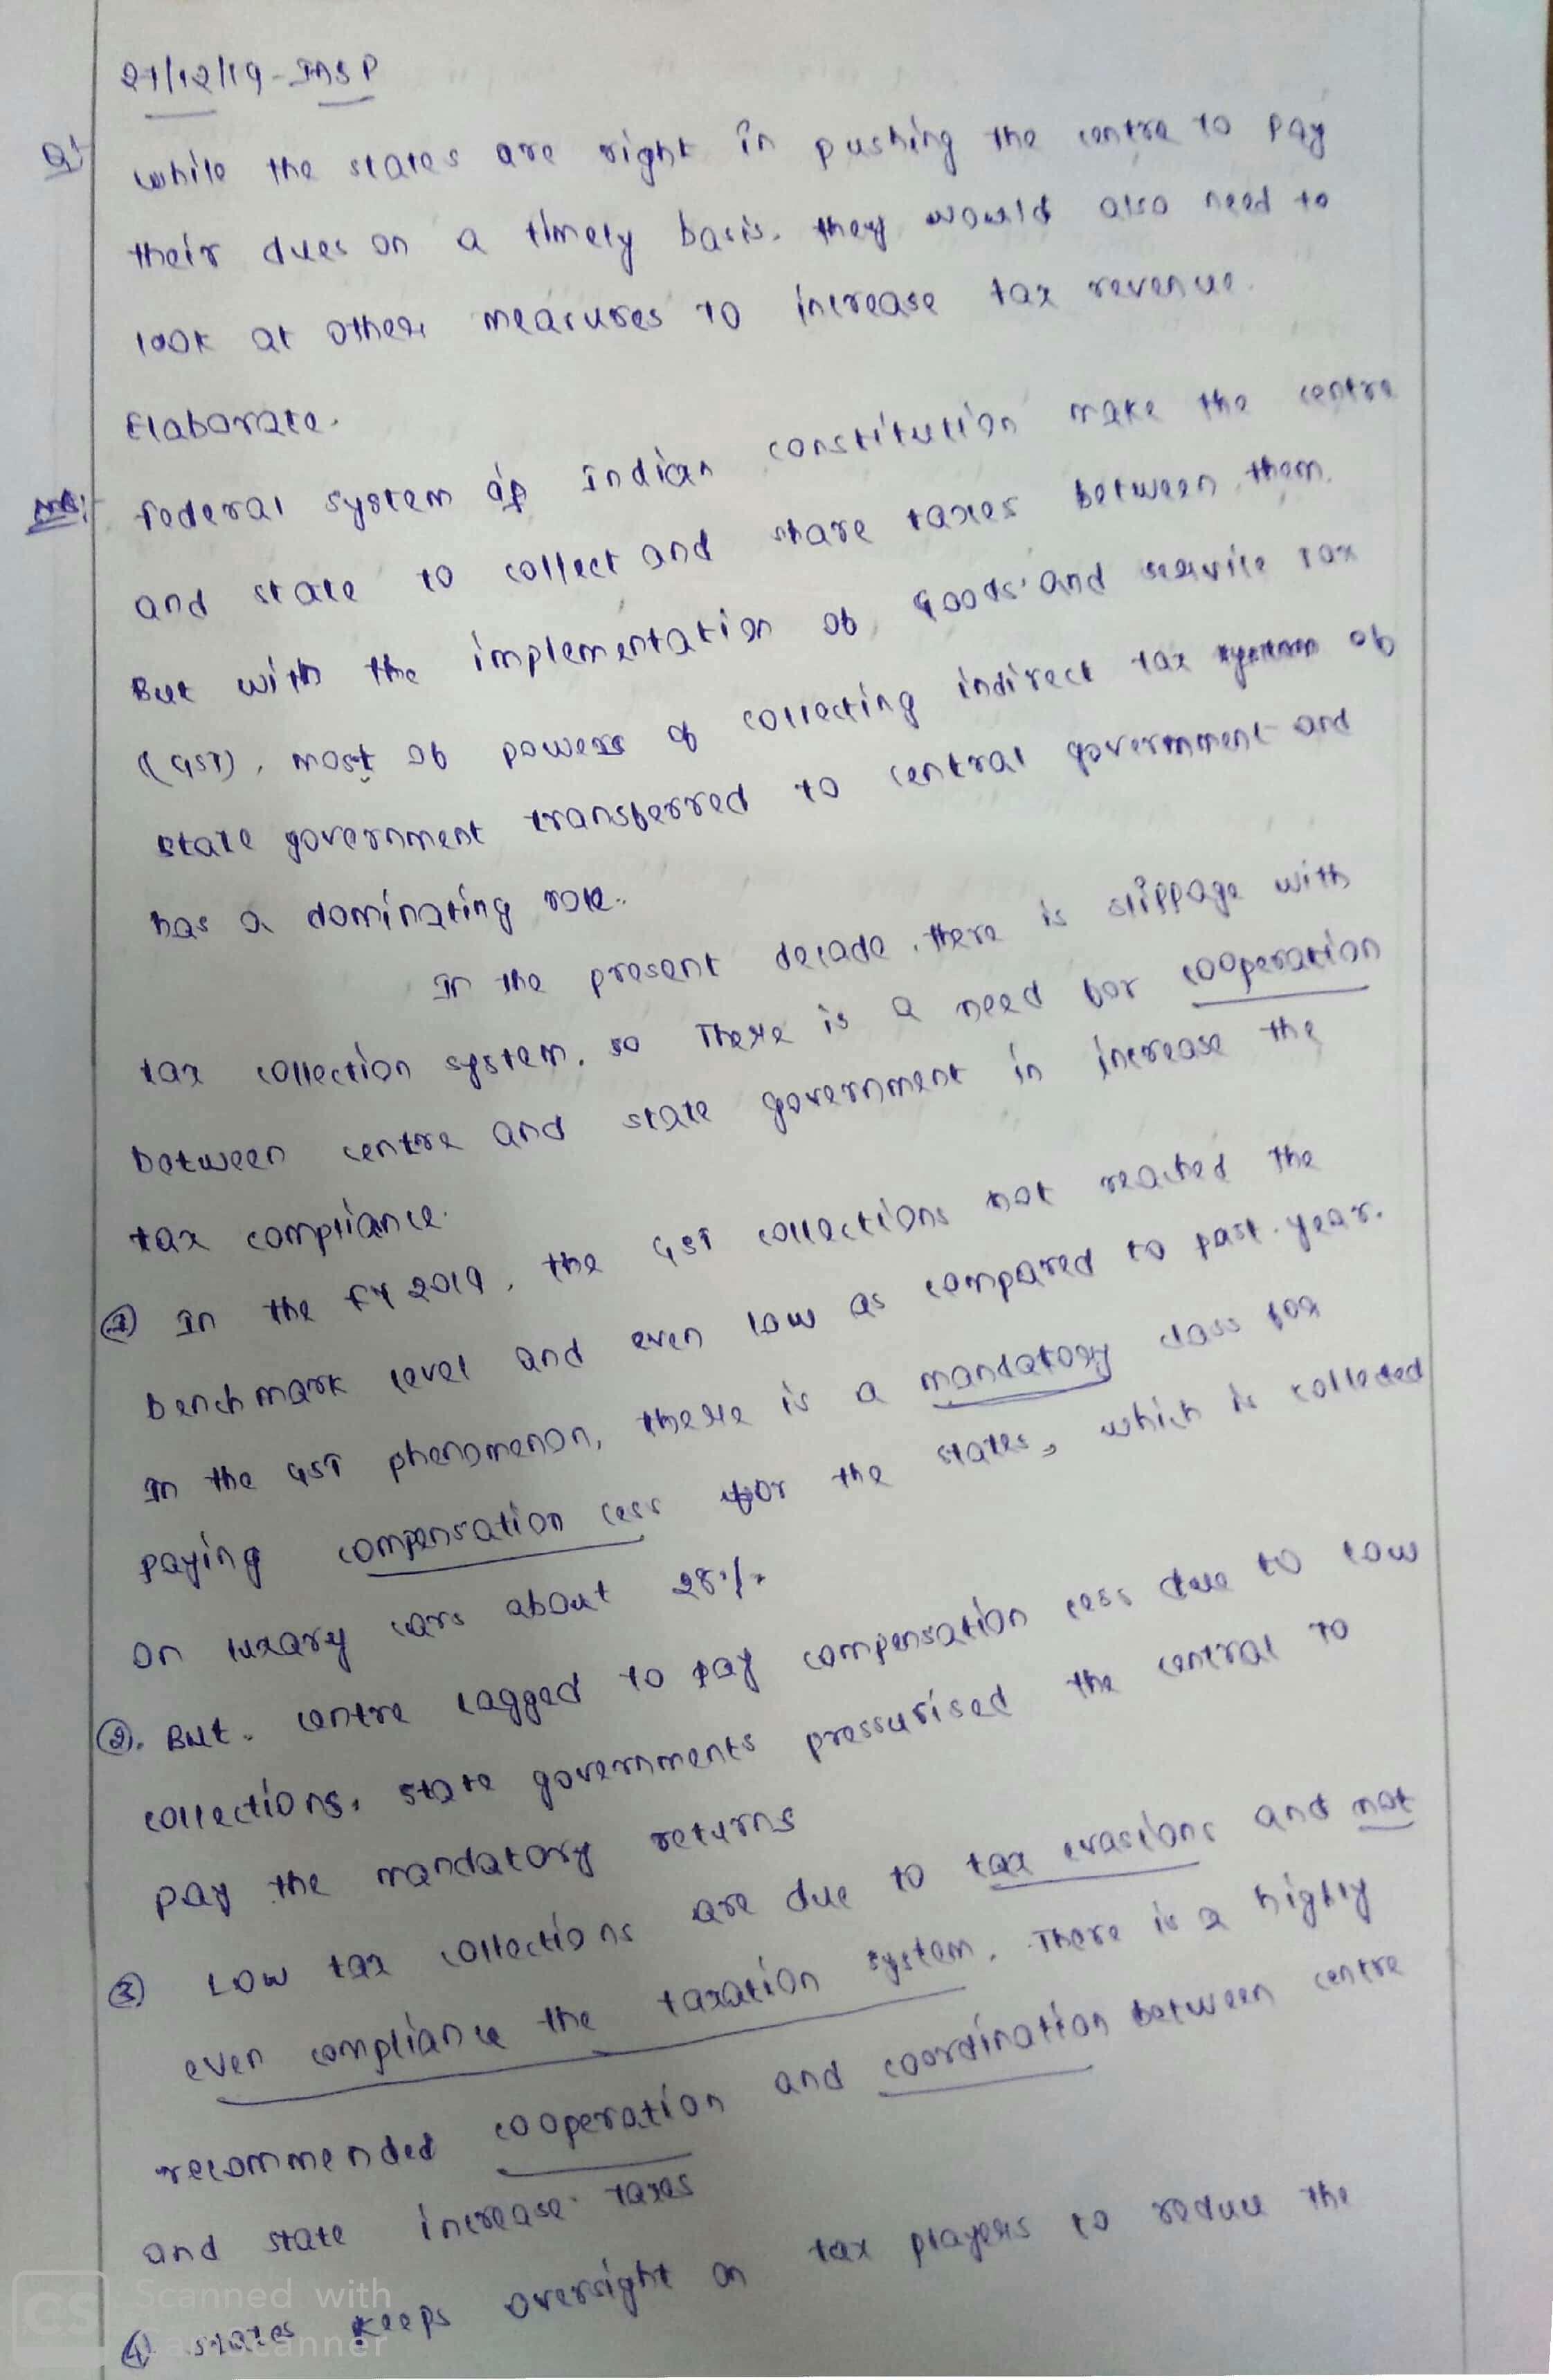 27/12/19 - IASP
Q:- while the states are right in pushing the centre to pay
their dues on a timely basis. they would also need to
look at other measures to increase tax revenue.
Elaborate.
Ans:- federal system of Indian constitution make the centre
and state to collect and share taxes between them.
But with the implementation of Goods and service tax
(GST), most of powers of collecting indirect tax system of
state government transferred to central government and
has a dominating role.
In the present decade, there is slippage with
tax collection system. so There is a need for cooperation
between centre and state government in increase the
tax compliance.
① In the FY 2019, the GST collections not reached the
bench mark level and even low as compared to past year.
In the GST phenomenon, there is a mandatory class for
paying compensation cess for the states, which is collected
on luxary cars about 28%
②. But. centre lagged to pay compensation cess due to low
collections. state governments pressurised the central to
pay the mandatory returns
③ Low tax collections are due to tax evasions and not
even compliance the taxation system. There is a highly
recommended cooperation and coordination between centre
and state increase taxes
④ states keeps oversight on tax players to reduce the
CS Scanned with
CamScanner